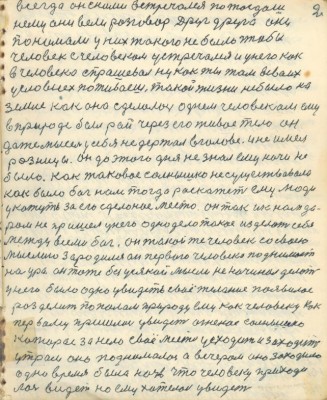 2
всегда он с ними встречался по погоди
ними они вели разговор друг друга они
понимали у них такого не было чтобы
человек с человеком встречался и у него как
в человека спрашевал ну как ты там в своих
условиях поживаеш, такой жизни небыло на
земле как она сделалась одним человекам ему
в природе был рай через его живое тело он
даже мысли у себя не держал в голове. и не имел
разницы. он до этого дня не знал ему ночи не
было, как таковое солнышко не существовало
как было бог нам тогда роскажет ему люди
укажуть за его сделоное место он так их нам да-
ром не пришел у него одно дело такое из делат себя
между всеми бог, он такой же человек со своею
мыслию зародился он первого человека поднимает
на ура он тоже без усякой мысли не начинал делат
у него было одно увидеть своё желание появилос
розделит по полам природу ему как человеку как
первому пришлос увидет огненое солнышко
которое занело своё место уходит и заходит
утром оно поднималос а вечером оно заходило
одно время была ноч что человеку приходи
лос видет но ему хателос увидет